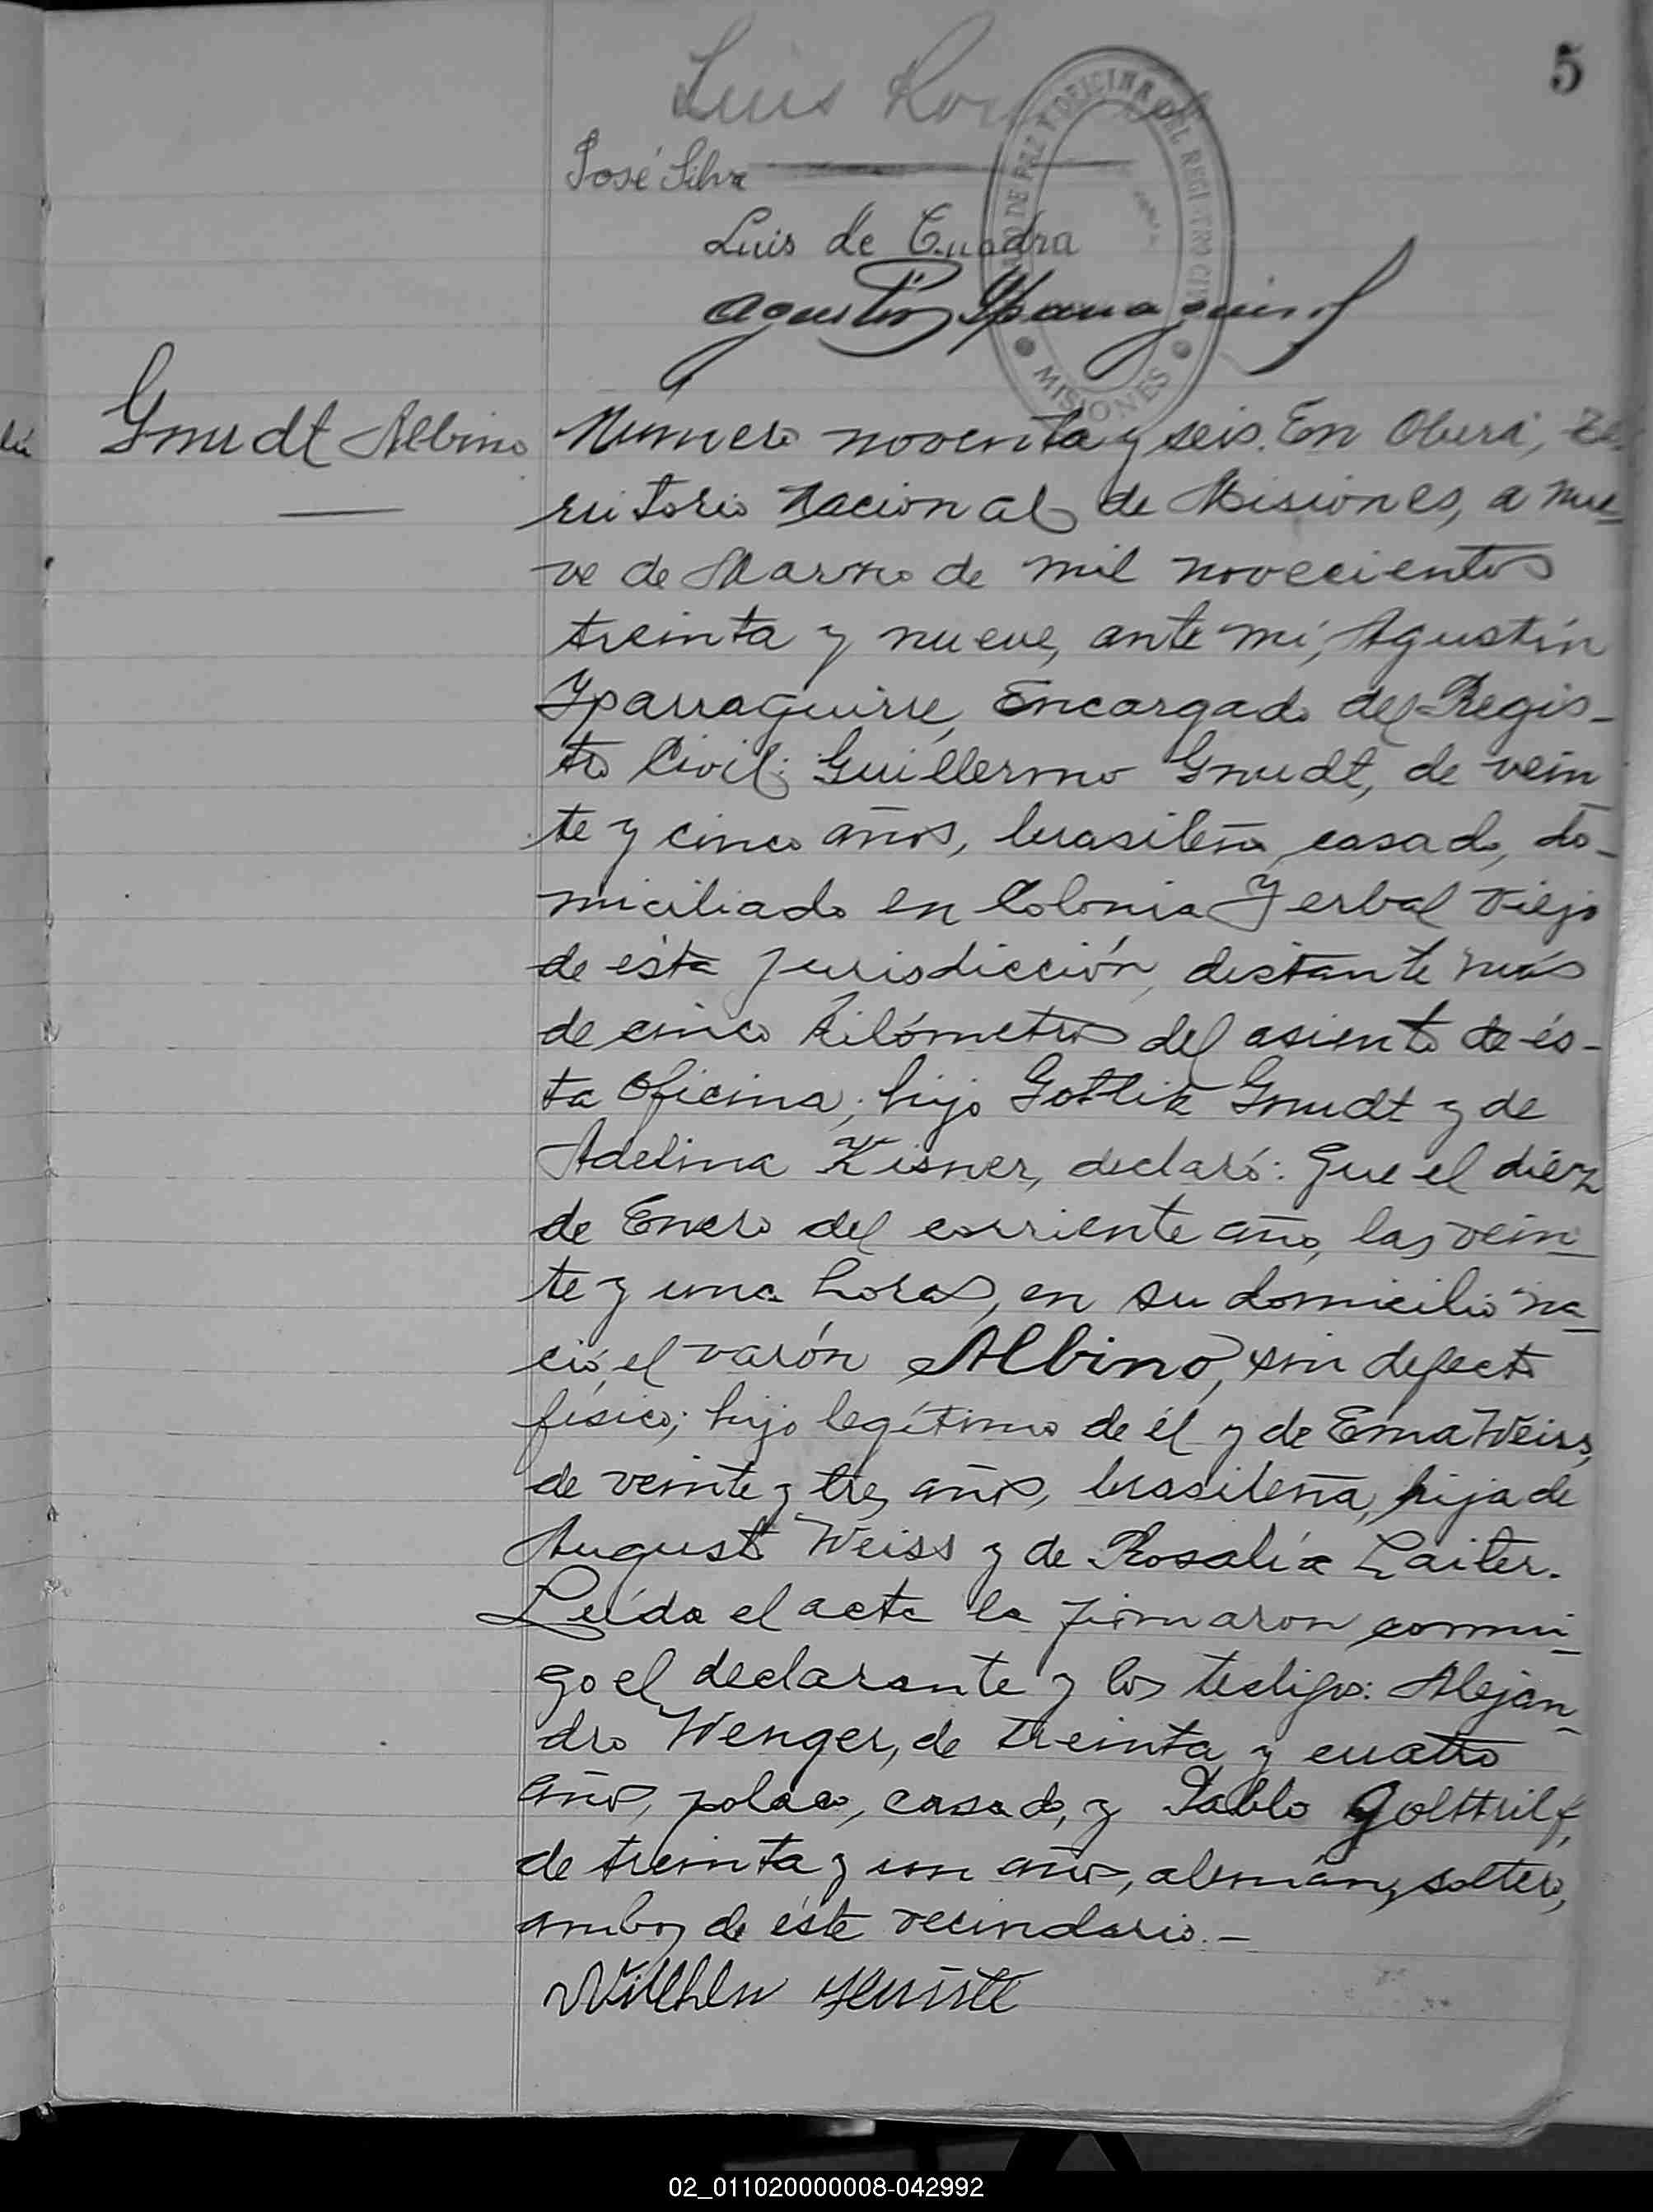 5
Luis
José Silva
Luis de Cuadra
JUZGADO DE PAZ Y OFICINA DEL REGISTRO CIVIL
Agustín Yparraguirre
MISIONES
Gmudt Albino
Número noventa y seis. En Oberá, Te-
rritorio Nacional de Misiones, a nue-
ve de Marzo de mil novecientos
treinta y nueve, ante mí, Agustín
Yparraguirre, Encargado del Regis-
tro Civil; Guillermo Gmudt, de vein
te y cinco años, brasileño, casado, do-
miciliado en Colonia Yerbal Viejo
de ésta jurisdicción, distante más
de cinco kilómetros del asiento de és-
ta Oficina; hijo Gotlib Gmudt y de
Adelina Kisner, declaró: Que el diéz
de Enero del corriente año, las vein-
te y una horas, en su domicilio na-
ció, el varón Albino, sin defecto
físico; hijo legítimo de él y de Ema Weiss,
de veinte y tres años, brasileña, hija de
Augusto Weiss y de Rosalía Laiter.
Leída el acta la firmaron conmi-
go el declarante y los testigos: Alejan-
dro Wenger, de treinta y cuatro
años, polaco, casado, y Pablo Golttrilf,
de treinta y un años, alemán, soltero,
ambos de éste vecindario.-
Wilhelm
02_011020000008-042992